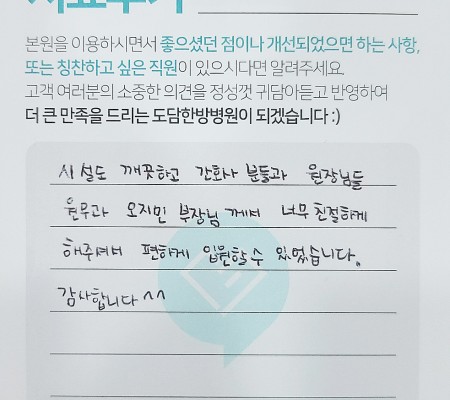 본원을 이용하시면서 좋으셨던 점이나 개선되었으면 하는 사항,
또는 칭찬하고 싶은 직원이 있으시다면 알려주세요.
고객 여러분의 소중한 의견을 정성껏 귀담아듣고 반영하여
더 큰 만족을 드리는 도담한방병원이 되겠습니다 :)
시설도 깨끗하고 간호사 분들과 원장님들
원무과 오지민 부장님께서 너무 친절하게
해주셔서 편하게 입원할 수 있었습니다.
감사합니다 ^^